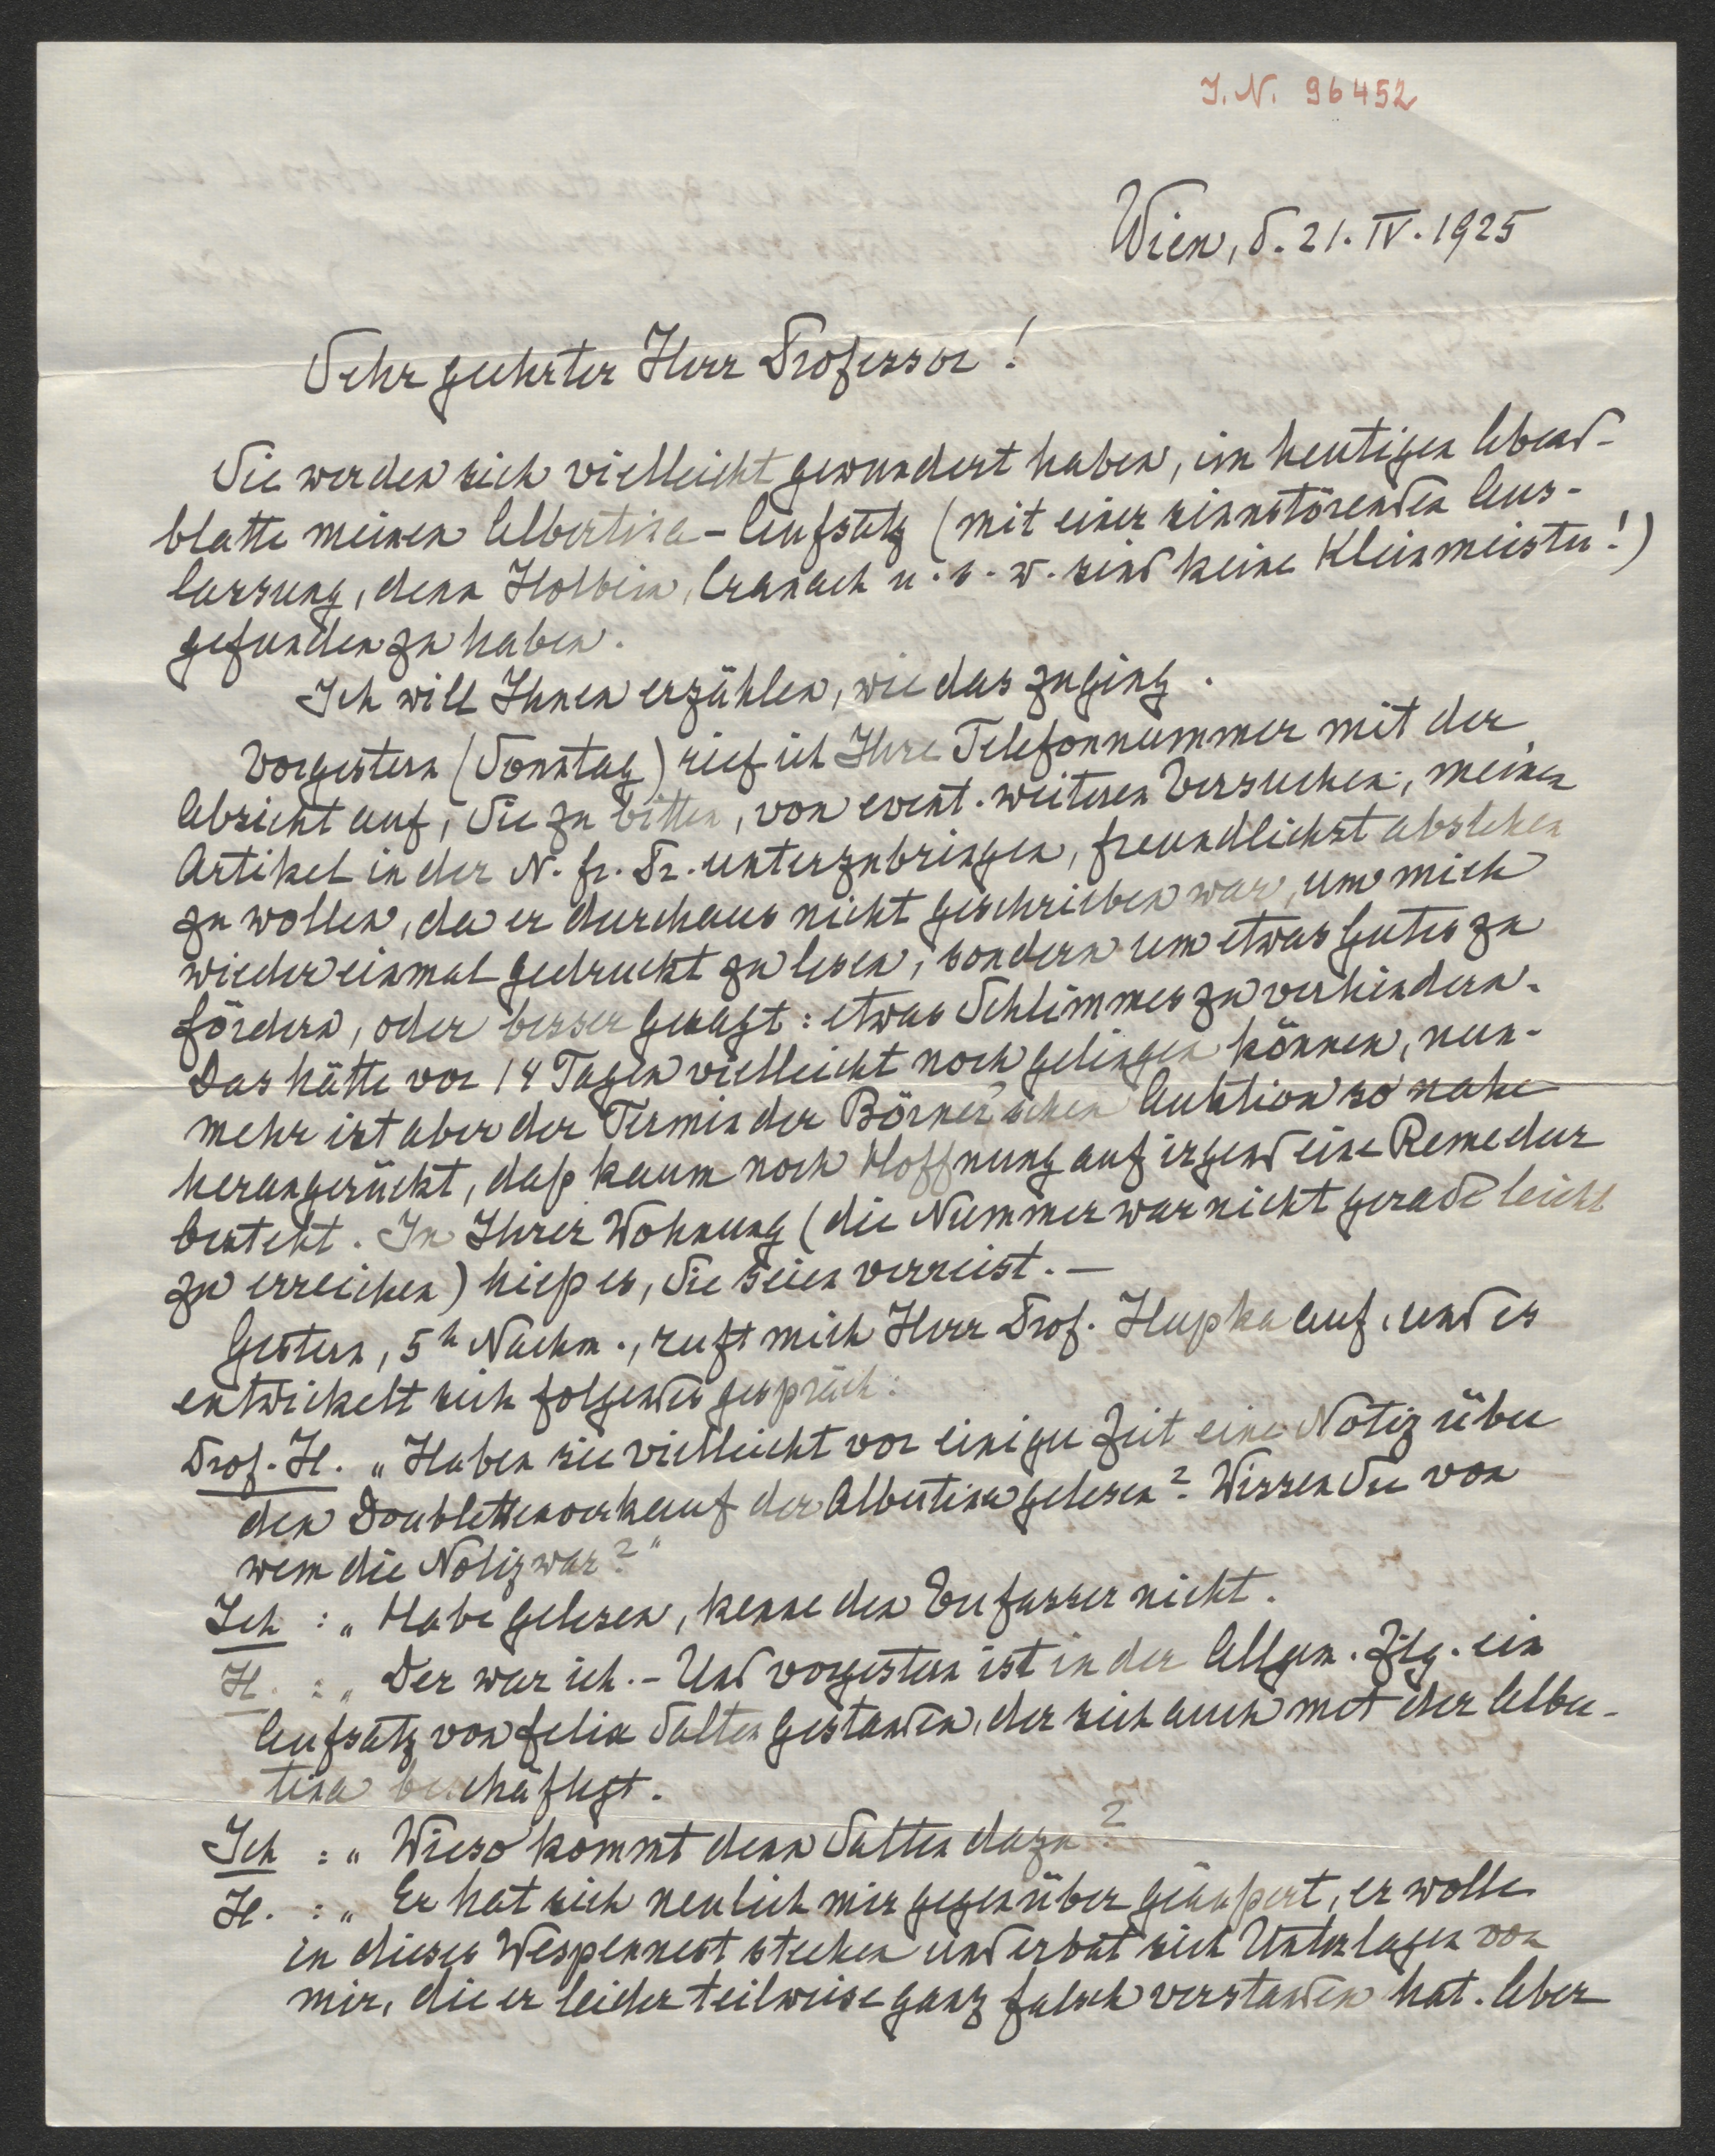 I. N. 96452
Wien, d. 21. IV. 1925
Sehr geehrter Herr Professor!
Sie werden sich vielleicht gewundert haben, im heutigen Abend-
blatte meinen Albertina-Aufsatz (mit einer sinnstörenden Aus-
lassung, denn Holbein, Cranach u. s. w. sind keine Kleinmeister!)
gefunden zu haben.
Ich will Ihnen erzählen, wie das zuging.
Vorgestern (Sonntag) rief ich Ihre Telefonnummer mit der
Absicht auf, Sie zu bitten, von event. weiteren Versuchen, meinen
Artikel in der N. fr. Pr. unterzubringen, freundlichst absehen
zu wollen, da er durchaus nicht geschrieben war, um mich
wieder einmal gedruckt zu lesen, sondern um etwas Gutes zu
fördern, oder besser gesagt: etwas Schlimmes zu verhindern.
Das hätte vor 14 Tagen vielleicht noch gelingen können, nun-
mehr ist aber der Termin der Börner'schen Auktion so nahe
herangerückt, daß kaum noch Hoffnung auf irgend eine Remedur
besteht. In Ihrer Wohnung (die Nummer war nicht gerade leicht
zu erreichen) hieß es, Sie seien verreist. —
Gestern, 5h Nachm., ruft mich Herr Prof. Hupka auf, und es
entwickelt sich folgendes Gespräch:
Prof. H. „Haben sie vielleicht vor einiger Zeit eine Notiz über
den Doublettenverkauf der Albertina gelesen? Wissen Sie von
wem die Notiz war?"
Ich : „Habe gelesen, kenne den Verfasser nicht.
H. : „Der war ich. – Und vorgestern ist in der Allgem. Ztg. ein
Aufsatz von Felix Salten gestanden, der sich auch mit der Alber-
tina beschäftigt.
Ich : „Wieso kommt denn Salten dazu?
H. : „Er hat sich neulich mir gegenüber geäußert, er wolle
in dieses Wespennest stechen und erbat sich Unterlagen von
mir, die er leider teilweise ganz falsch verstanden hat. Aber